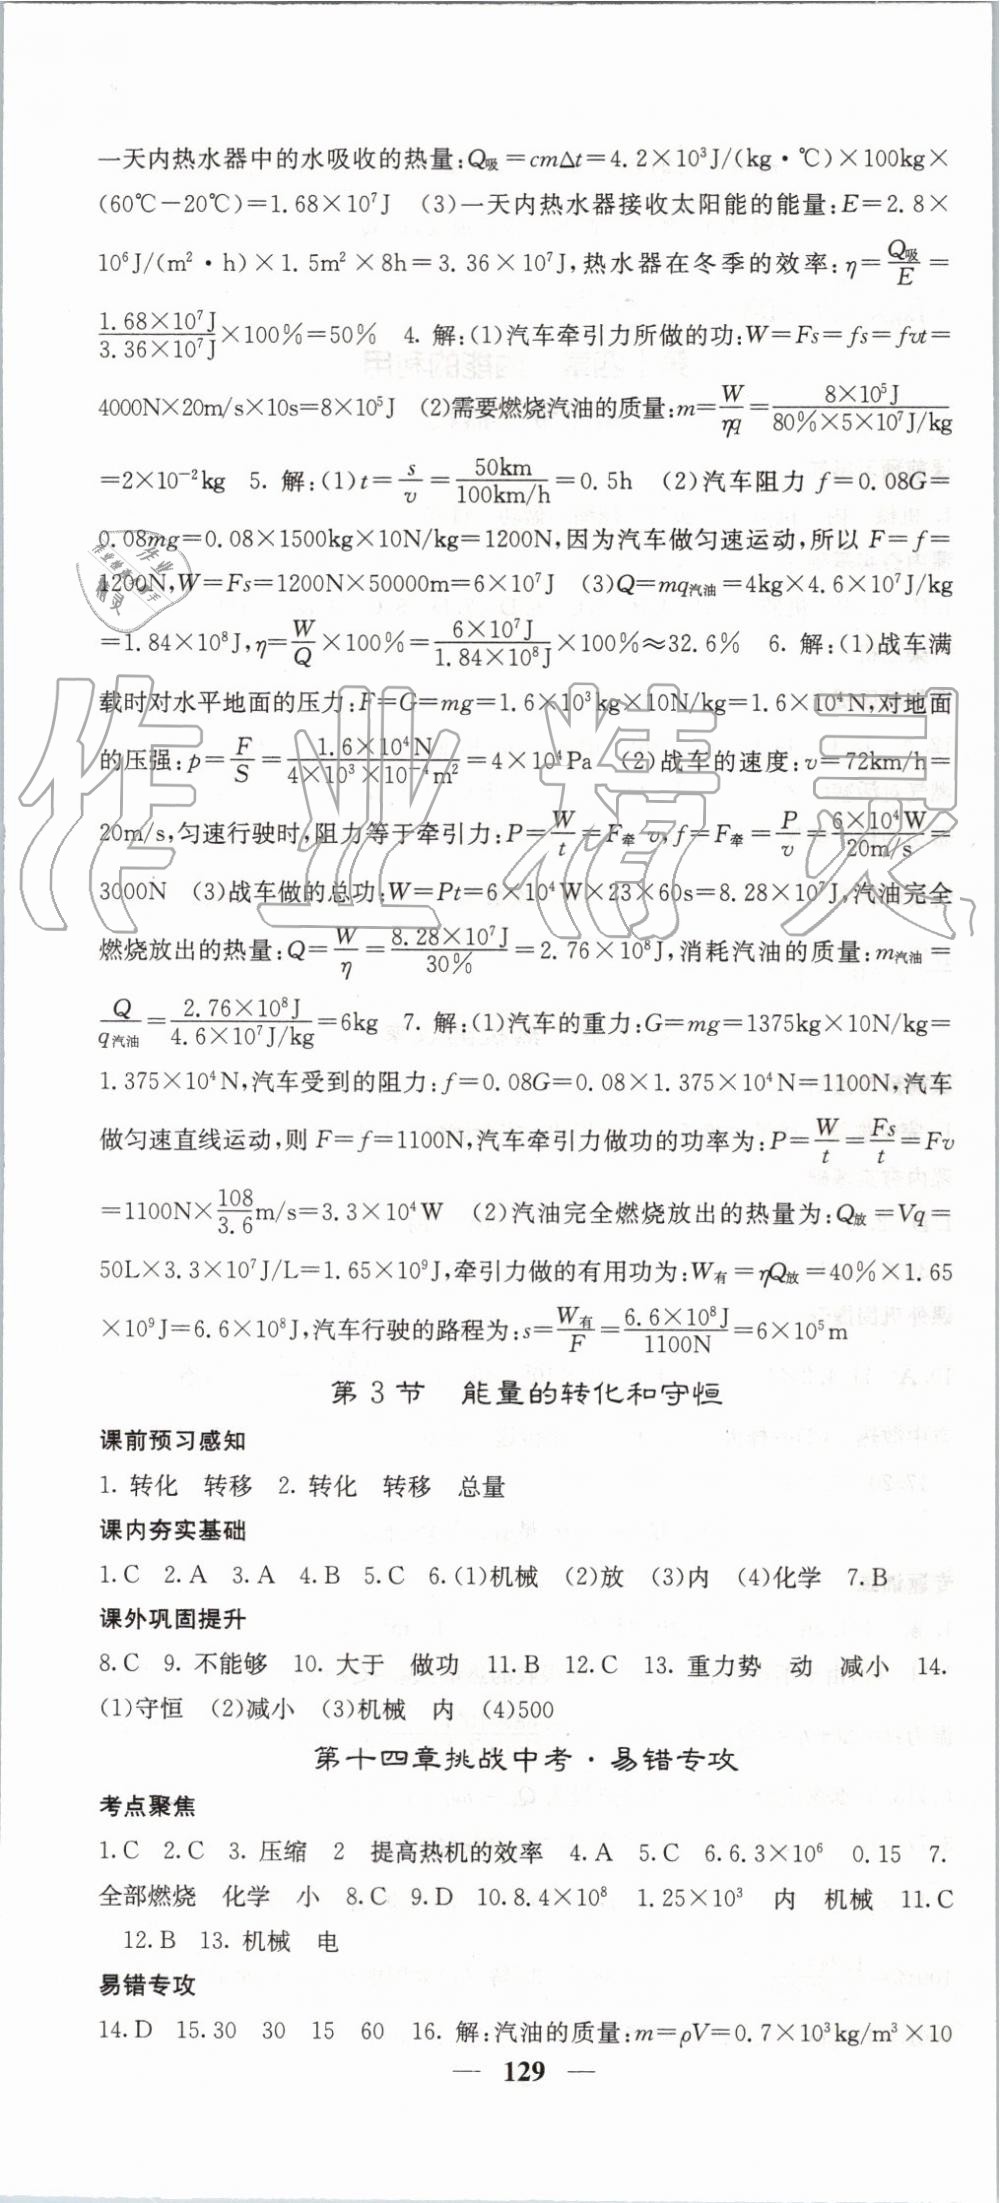 一天内热水器中的水吸收的热量:Q吸=cmΔt=4.2×10³J/(kg·℃)×100kg×
(60℃-20℃)=1.68×10⁷J (3)一天内热水器接收太阳能的能量:E=2.8×
10⁶J/(m²·h)×1.5m²×8h=3.36×10⁷J,热水器在冬季的效率:η=Q吸/E=
1.68×10⁷J/3.36×10⁷J×100%=50% 4. 解:(1)汽车牵引力所做的功:W=Fs=fs=fvt=
4000N×20m/s×10s=8×10⁵J (2)需要燃烧汽油的质量:m=W/ηq=8×10⁵J/80%×5×10⁷J/kg
=2×10⁻²kg 5. 解:(1)t=s/v=50km/100km/h=0.5h (2)汽车阻力 f=0.08G=
0.08mg=0.08×1500kg×10N/kg=1200N,因为汽车做匀速运动,所以 F=f=
1200N,W=Fs=1200N×50000m=6×10⁷J (3)Q=mq汽油=4kg×4.6×10⁷J/kg
=1.84×10⁸J,η=W/Q×100%=6×10⁷J/1.84×10⁸J×100%≈32.6% 6. 解:(1)战车满
载时对水平地面的压力:F=G=mg=1.6×10³kg×10N/kg=1.6×10⁴N,对地面
的压强:p=F/S=1.6×10⁴N/4×10³×10⁻⁴m²=4×10⁴Pa (2)战车的速度:v=72km/h=
20m/s,匀速行驶时,阻力等于牵引力:P=W/t=F牵v,f=F牵=P/v=6×10⁴W/20m/s=
3000N (3)战车做的总功:W=Pt=6×10⁴W×23×60s=8.28×10⁷J,汽油完全
燃烧放出的热量:Q=W/η=8.28×10⁷J/30%=2.76×10⁸J,消耗汽油的质量:m汽油=
Q/q汽油=2.76×10⁸J/4.6×10⁷J/kg=6kg 7. 解:(1)汽车的重力:G=mg=1375kg×10N/kg=
1.375×10⁴N,汽车受到的阻力:f=0.08G=0.08×1.375×10⁴N=1100N,汽车
做匀速直线运动,则 F=f=1100N,汽车牵引力做功的功率为:P=W/t=Fs/t=Fv
=1100N×108/3.6m/s=3.3×10⁴W (2)汽油完全燃烧放出的热量为:Q放=Vq=
50L×3.3×10⁷J/L=1.65×10⁹J,牵引力做的有用功为:W有=ηQ放=40%×1.65
×10⁹J=6.6×10⁸J,汽车行驶的路程为:s=W有/F=6.6×10⁸J/1100N=6×10⁵m
第3节 能量的转化和守恒
课前预习感知
1. 转化 转移 2. 转化 转移 总量
课内夯实基础
1.C 2.A 3.A 4.B 5.C 6.(1)机械 (2)放 (3)内 (4)化学 7.B
课外巩固提升
8.C 9. 不能够 10. 大于 做功 11.B 12.C 13. 重力势 动 减小 14.
(1)守恒 (2)减小 (3)机械 内 (4)500
第十四章挑战中考·易错专攻
考点聚焦
1.C 2.C 3. 压缩 2 提高热机的效率 4.A 5.C 6.6.3×10⁶ 0.15 7.
全部燃烧 化学 小 8.C 9.D 10.8.4×10⁸ 1.25×10³ 内 机械 11.C
12.B 13. 机械 电
易错专攻
14.D 15.30 30 15 60 16. 解:汽油的质量:m=ρV=0.7×10³kg/m³×10
— 129 —
作业精灵